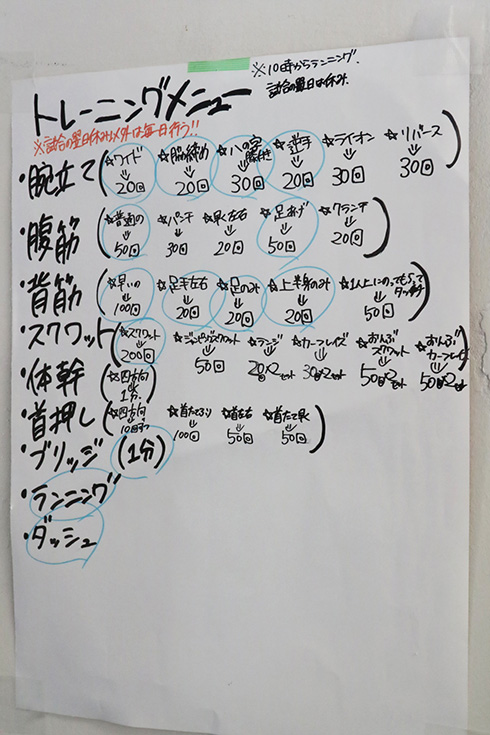 ※10時からランニング.
試合の翌日は休み.
トレーニングメニュー
※試合の翌日休み以外は毎日行う!!
・腕立て (☆ワイド⇓20回 ☆脇締め⇓20回 ☆八の字⇓30回 ☆逆手⇓20回 ☆ライオン⇓30回 ☆リバース⇓30回)
・腹筋 (☆普通の⇓50回 ☆パンチ⇓30回 ☆早く左右⇓20回 ☆足あげ⇓50回 ☆クランチ⇓20回)
・背筋 (☆早いの⇓100回 ☆足手左右⇓20回 ☆足のみ⇓20回 ☆上半身のみ⇓20回 ☆1人上にのってもらって⇓50回)
・スクワット (☆スクワット⇓200回 ☆ジャンピングスクワット⇓50回 ☆ランジ⇓20回×2セット ☆カーフレイズ⇓30回×2セット ☆おんぶスクワット⇓50回×2セット ☆おんぶカーフレイズ⇓50回×2セット)
・体幹 (☆四方向⇓1分)
・首押し (☆四方向⇓10回ずつ ☆首たてぶり⇓100回 ☆首左右⇓50回 ☆首たて早く⇓50回)
・ブリッジ (1分)
・ランニング
・ダッシュ